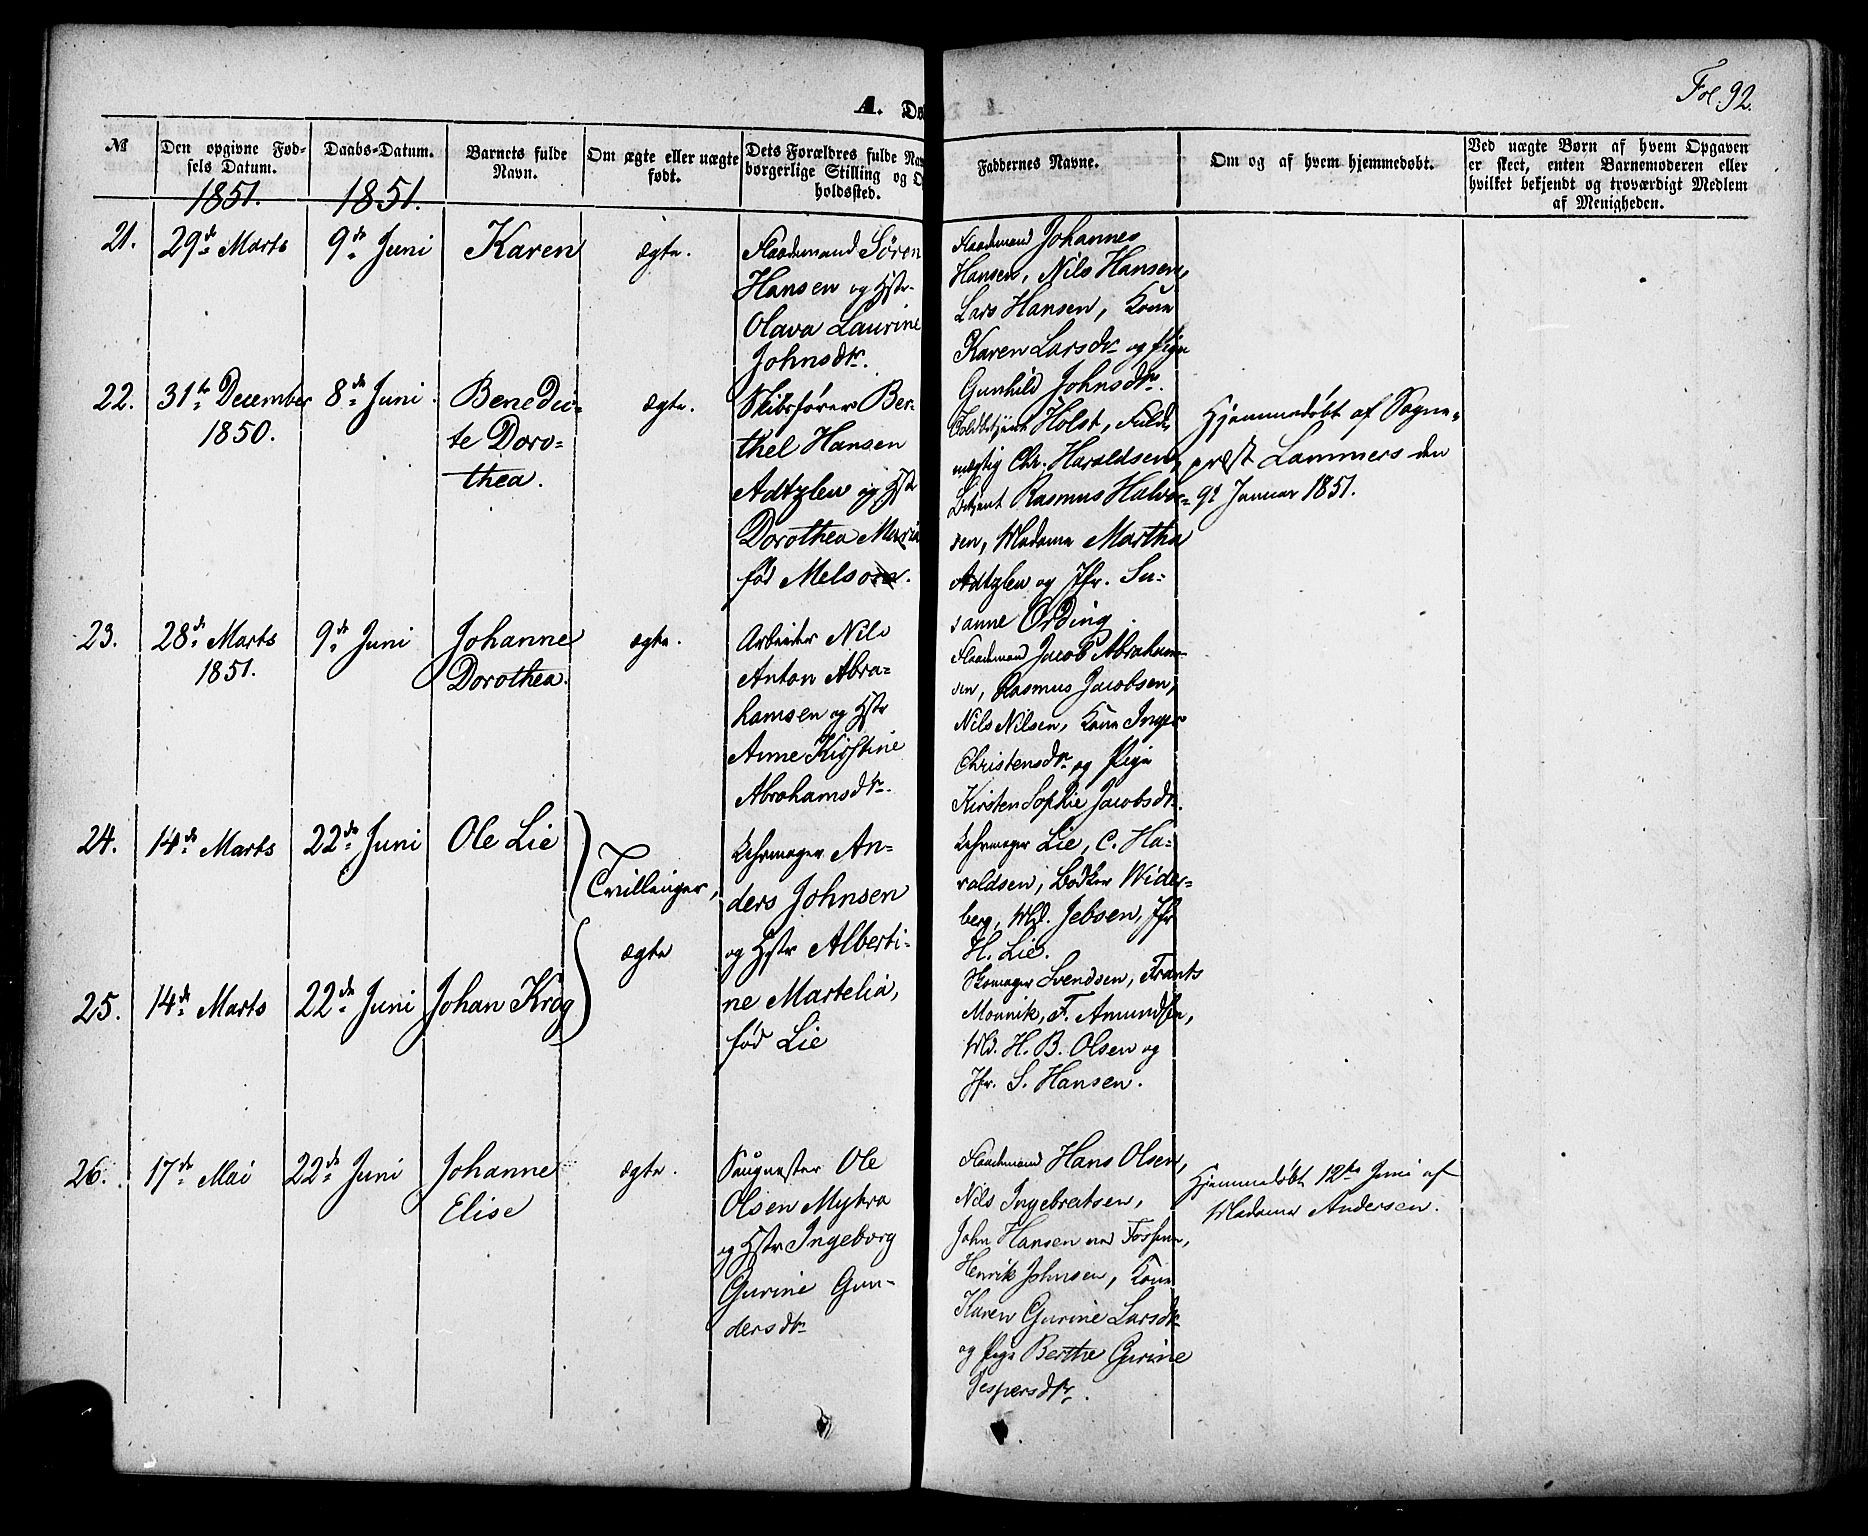 Fol. 92.
A. D
№
Den opgivne Fød-
sels Datum.
1851.
Daabs-Datum.
1851.
Barnets fulde
Navn.
Om ægte eller uægte
født.
Dets Forældres fulde Nav
borgerlige Stilling og O
holdssted.
Faddernes Navne.
Om og af hvem hjemmedøbt.
Ved uægte Børn af hvem Opgaven
er skeet, enten Barnemoderen eller
hvilket bekjendt og troværdigt Medlem
af Menigheden.
21.
29de Marts
9de Juni
Karen
ægte.
Flaademand Søren
Hansen og Hstr.
Olava Laurine
Johnsdtr.
Flaademand Johannes
Hansen, Nils Hansen,
Lars Hansen, Kone
Karen Larsdtr og Pige
Gunhild Johnsdtr.
22.
31te December
1850.
8de Juni.
Benedic-
te Doro-
thea.
ægte.
Skibsfører Ber-
thel Hansen
Adtzlew og Hstr
Dorothea Maria
fød Melsom.
Toldbetjent Holst, Fuld-
mægtig Chr. Haraldsen,
Betjent Rasmus Halvor-
sen, Madame Martha
Adtzlew og Jfr. Su-
sanne Ording.
Hjemmedøbt af Sogne-
prest Lammers den
9de Januar 1851.
23.
28de Marts
1851.
9de Juni
Johanne
Dorothea.
ægte.
Arbeider Nils
Anton Abra-
hamsen og Hstr
Anne Kirstine
Abrahamsdtr.
Flaademand Jacob Abraham-
sen, Rasmus Jacobsen,
Nils Nilsen, Kone Inger
Christensdtr. og Pige
Kirsten Sophie Jacobsdtr.
24.
14de Marts
22de Juni
Ole Lie
Tvillinger,
ægte
Uhrmager An-
ders Johnsen
og Hstr Alberti-
ne Martelia,
fød Lie
Uhrmager Lie, C. Ha-
raldsen, Bødker Wider-
berg, Md. Jebsen, Jfr
H. Lie.
25.
14de Marts
22de Juni
Johan Krog
Skomager Svendsen, Frants
Monnik, F. Amundsen,
Md. H. B. Olsen og
Jfr. S. Hansen.
26.
17de Mai
22de Juni
Johanne
Elise
ægte.
Saugmester Ole
Olsen Myhra
og Hstr Ingeborg
Gurine Gun-
dersdtr
Flaademand Hans Olsen,
Nils Ingebretsen,
John Hansen ved Fossum,
Henrik Johnsen, Kone
Karen Gurine Larsdtr
og Pige Berthe Gurine
Jespersdtr.
Hjemmedøbt 12te Juni af
Madame Andersen.